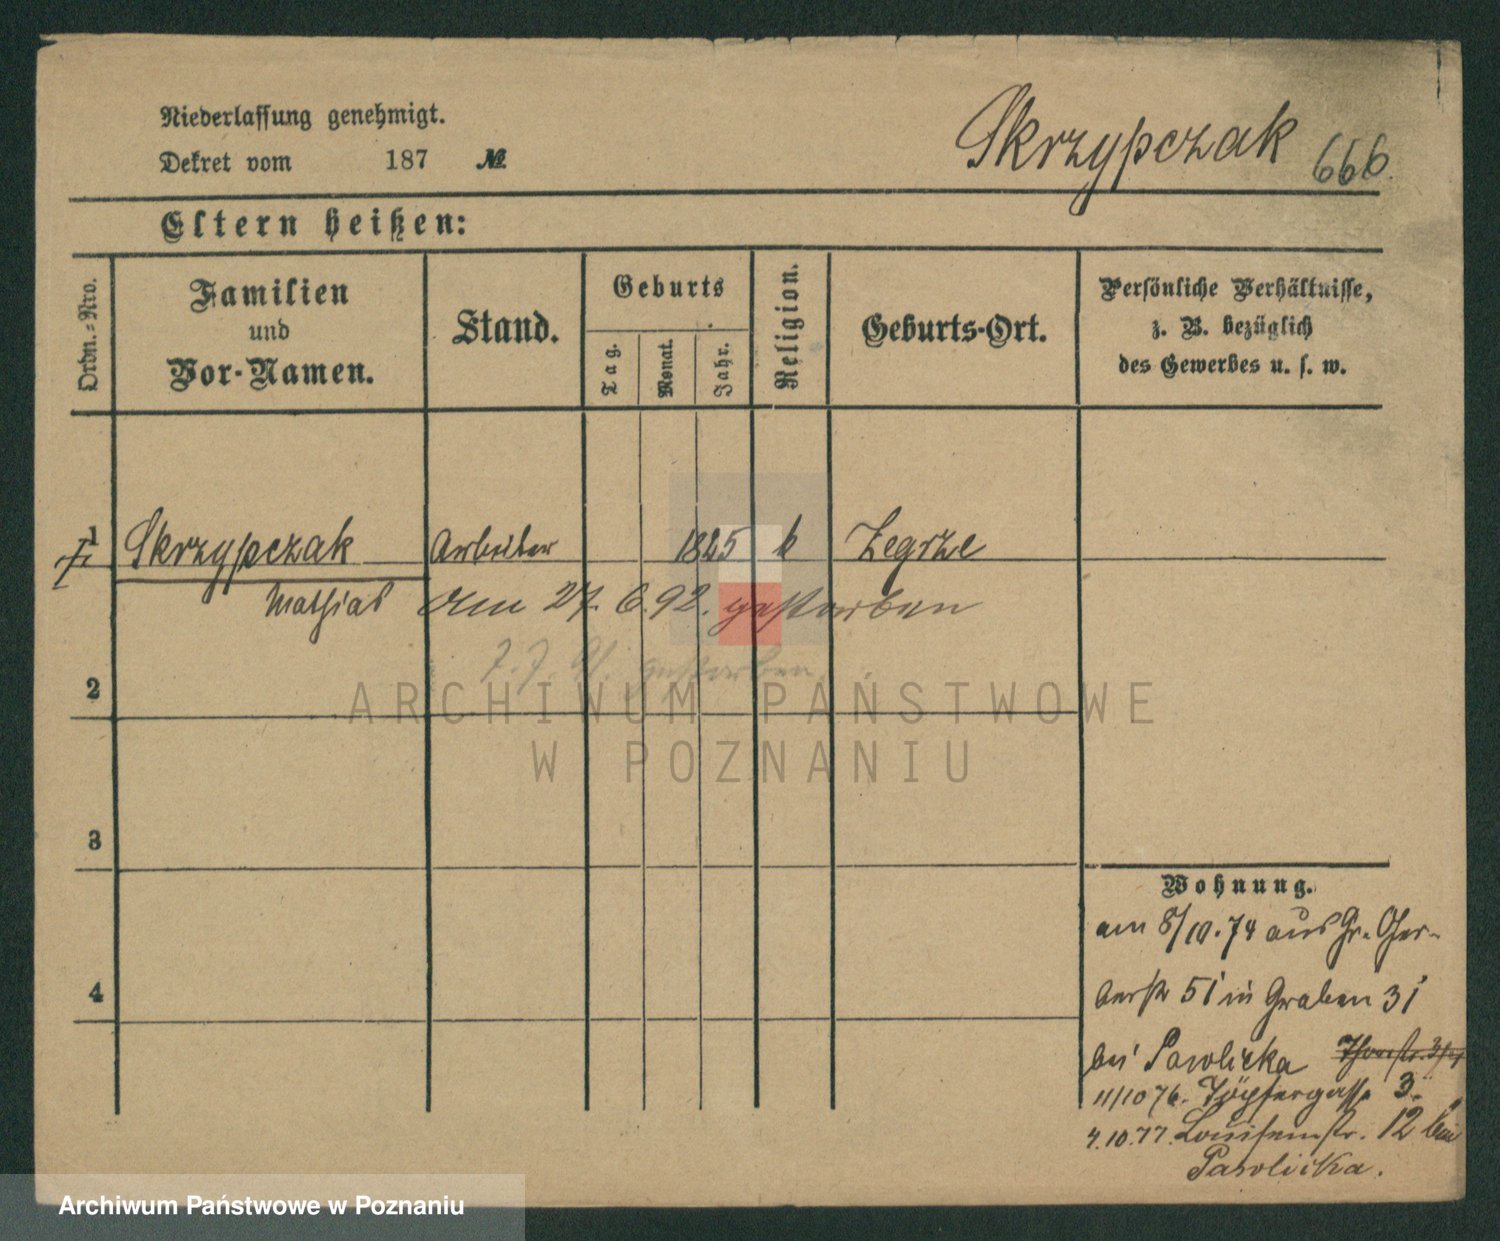 Niederlassung genehmigt.
Dekret vom 187 №
Skrzypczak 666.
Eltern heißen:
Ordn.-Nro.
Familien
und
Vor-Namen.
Stand.
Geburts
Tag.
Monat.
Jahr.
Religion.
Geburts-Ort.
Persönliche Verhältnisse,
z. B. bezüglich
des Gewerbes u. s. w.
1 Skrzypczak Arbeiter 1825 k Zegrze
Mathias am 27. 6. 92. gestorben
gestorben
2
ARCHIWUM PAŃSTWOWE
W POZNANIU
3
4
Wohnung.
am 8/10.74 aus Gr. Ger-
berstr 51 in Graben 31
bei Pawlicka
11/10 76. Töpfergasse 3.
4.10.77. Louisenstr. 12 bei
Pawlicka.
Archiwum Państwowe w Poznaniu